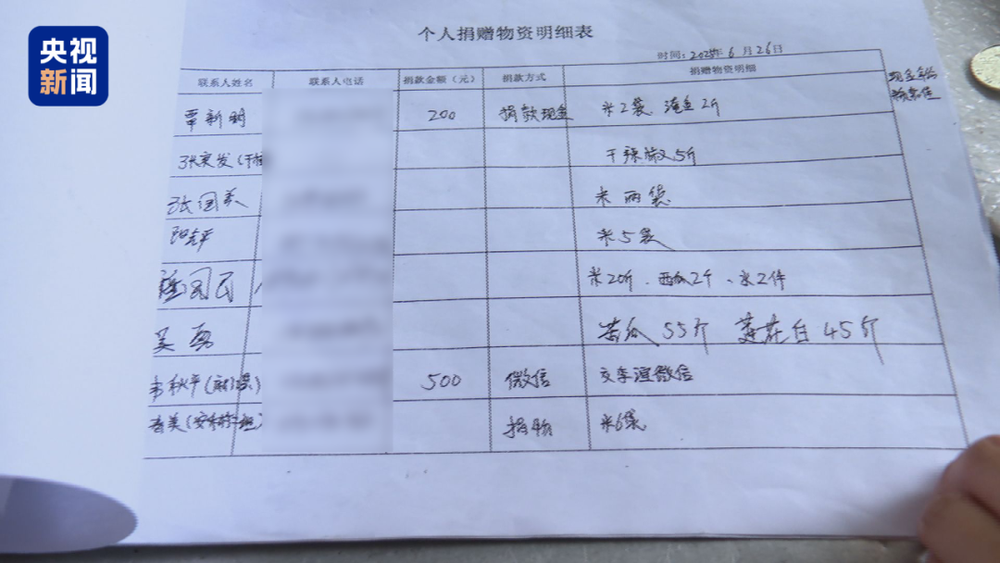 央视
新闻
个人捐赠物资明细表
时间：2025年6月26日
联系人姓名 联系人电话 捐款金额（元） 捐款方式 捐赠物资明细
覃新明 200 捐款现金 米2袋、淹鱼2斤
干辣椒5斤
张国 米两袋
阳 米5袋
米20斤、西瓜2个、水2件
吴勇 苦瓜55斤 莲花白45斤
韦秋平 500 微信 交李谊微信
春美 捐物 米6袋